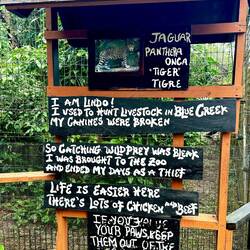 JAGUAR
PANTHERA
ONCA
'TIGER'
TIGRE
I AM LINDO!
I USED TO HUNT LIVESTOCK IN BLUE CREEK
MY CANINES WERE BROKEN
SO CATCHING WILD PREY WAS BLEAK
I WAS BROUGHT TO THE ZOO
AND ENDED MY DAYS AS A THIEF
LIFE IS EASIER HERE
THERE'S LOTS OF CHICKEN AND BEEF
IF YOU
YOUR PAWS, KEEP
THEM OUT OF THE